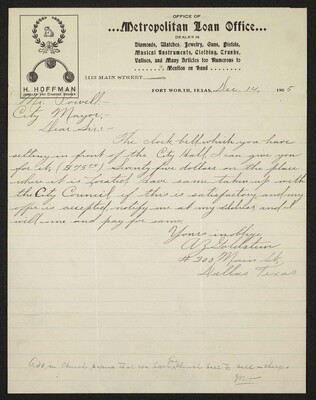 OFFICE OF
...Metropolitan Loan Office...
DEALER IN
Diamonds, Watches, Jewelry, Guns, Pistols,
Musical Instruments, Clothing, Trunks,
Valises, and Many Articles too Numerous to
Mention on Hand
H. HOFFMAN
1113 MAIN STREET
FORT WORTH, TEXAS, Dec. 14, 190
Mr. Powell,-
City Mayor,-
Dear Sir:-
The clock bell which you have
setting in front of the City Hall, I can give you
for it, ($75.00) Seventy five dollars in the place
where it is located. Have same taken up with
the City Council, if this is satisfactory and my
offer is accepted, notify me at my address and I
will come and pay for same.
Yours in oblige
A Z Goldstein
# 303 Main St,
Dallas Texas